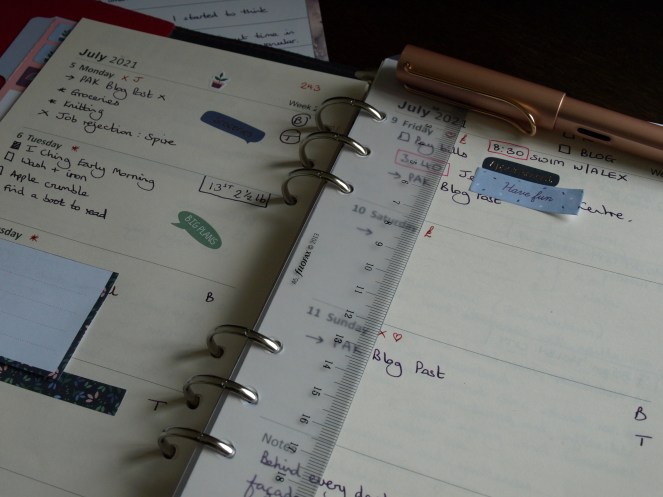 I started to think
time in
July 2021
5 Monday x J
→ PAK Blog Post x
* Groceries
* Knitting
x Job rejection : Spire
Week 2
B
6 Tuesday *
I Ching Early Morning
Wash + iron
Apple crumble
Find a book to read
13st 2½ lb
BIG PLANS
sday *
B
T
filofax © 2012
7
8
9
10
11
12
13
14
15
16
17
18
July 2021
9 Friday
Pay bills
→ PAK
Blog Post
8:30 SWIM W/ALEX
BLOG
Have fun
Centre.
10 Saturday
→
11 Sunday x ♡
→ PAK Blog Post
B
T
Notes
Behind every
façade